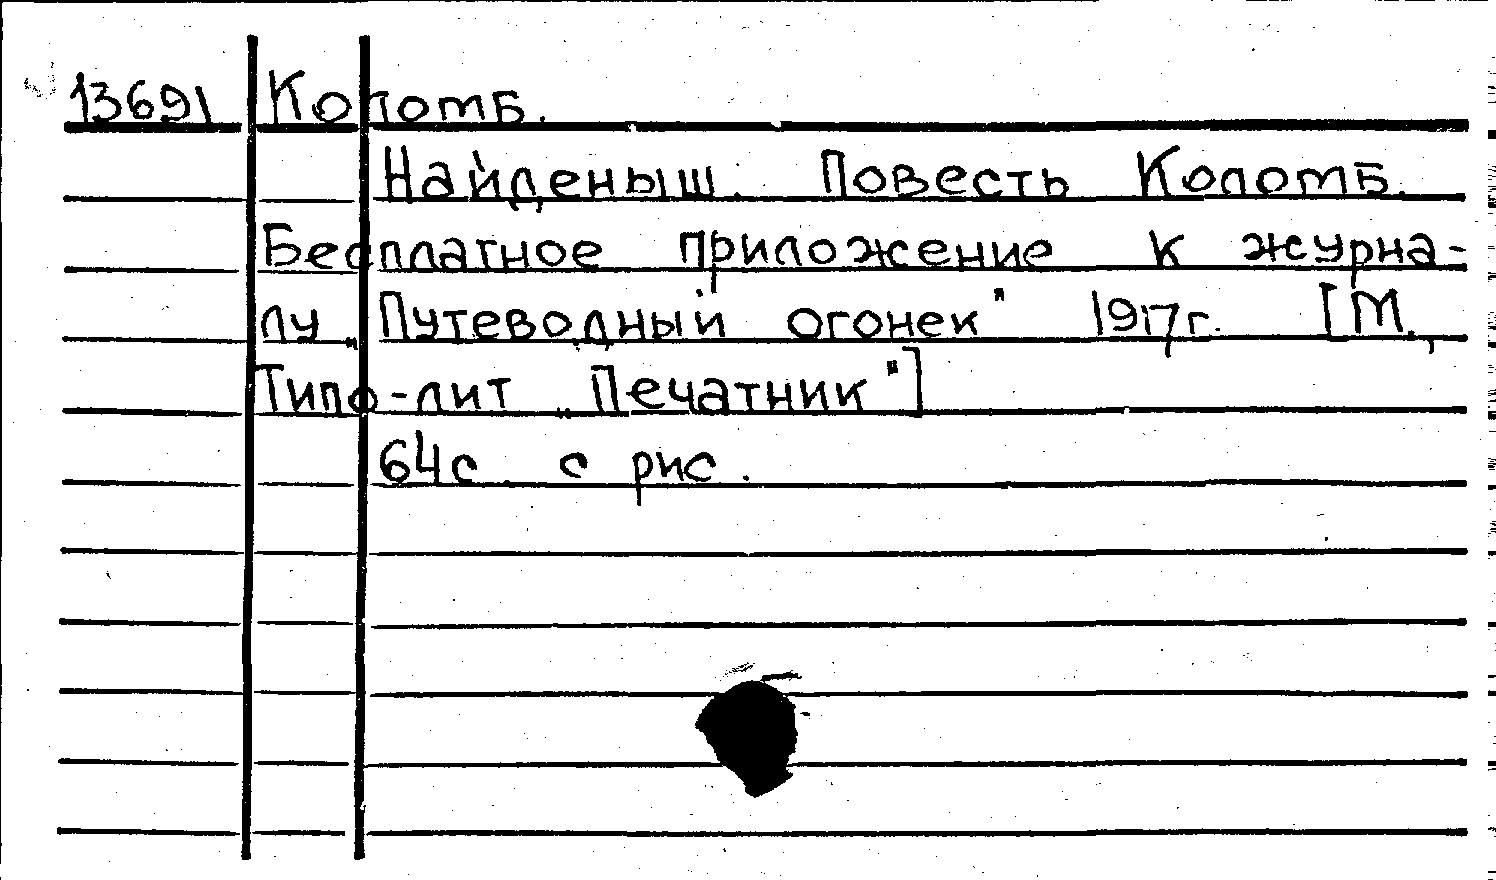 13691 Коломб.
Найденыш. Повесть Коломб.
Бесплатное приложение к журна-
лу „Путеводный огонек" 1917г. [М.,
Типо-лит „Печатник"]
64с. с рис.